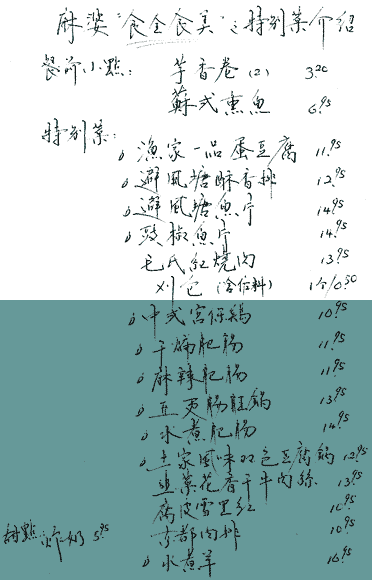 麻婆"食全食美"之特别菜介绍
餐前小點: 芋香卷 (2) 3.20
蘇式熏魚 6.95
特别菜:
漁家一品蛋豆腐 11.95
避風塘酥香排 12.95
避風塘魚片 14.95
豉椒魚片 14.95
毛氏紅燒肉 13.95
刈包 (含佐料) 1个/0.50
中式宫保鷄 10.95
干煸肥腸 11.95
麻辣肥腸 11.95
五更腸旺鍋 13.95
水煮肥腸 14.95
土家風味双色豆腐鍋 12.95
韮菜花香干牛肉絲 13.95
腐皮雪里红
京都肉排 10.95
甜點 5.95
水煮羊 16.95